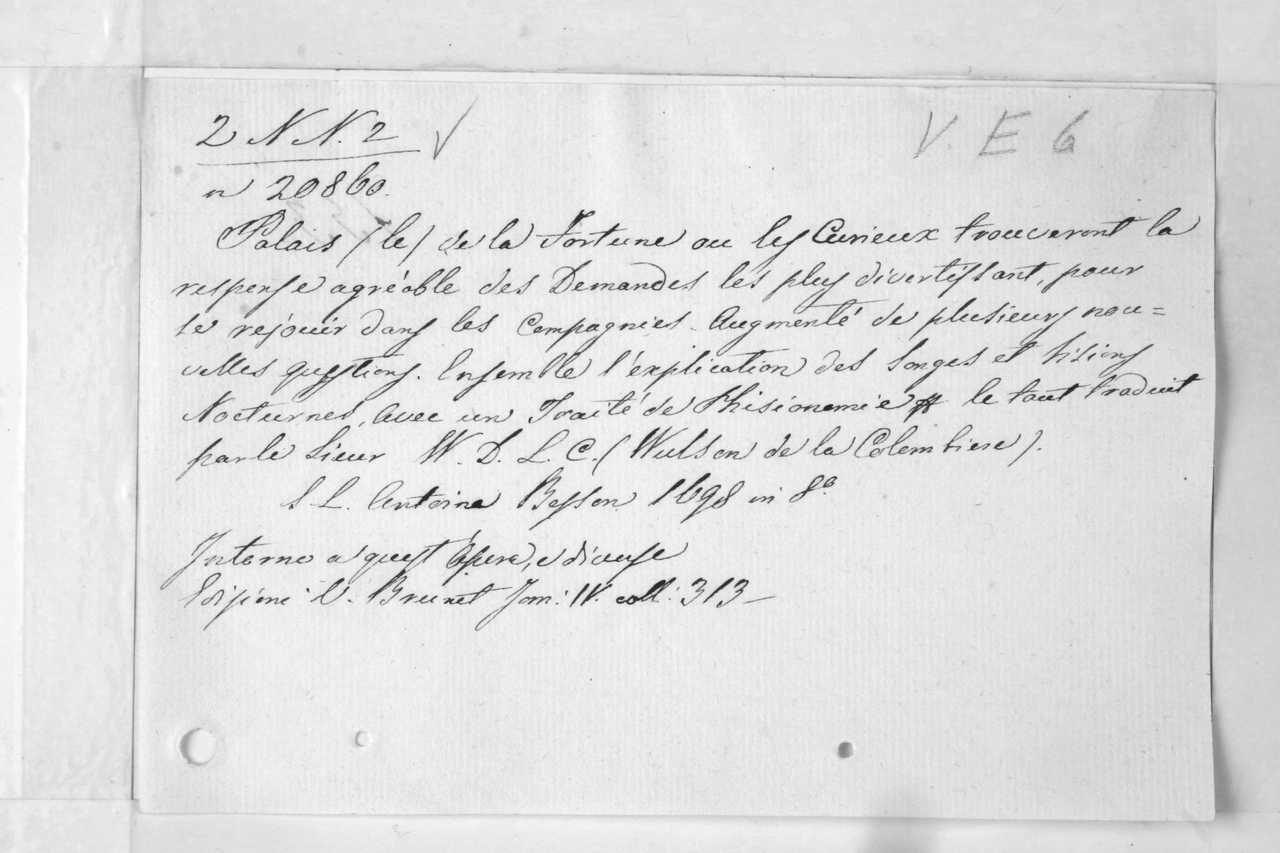 2 N N. 2 √ V. E 6
n 20860.
Palais (le) de la Fortune ou les Curieux trouveront la
response agréable des Demandes les plus divertissant, pour
se rejouir dans les Compagnies. Augmenté de plusieurs nou=
velles questions. Ensemble l'explication des Songes et Visions
Nocturnes, avec un Traité de Phisionomie le tout traduit
par le Sieur W. D. L. C. (Wulson de la Colombiere).
S. L. Antoine Besson 1698 in 8.º
Intorno a quest' Opera, e diverse
Edizioni V. Brunet Tom: IV. coll: 313 –